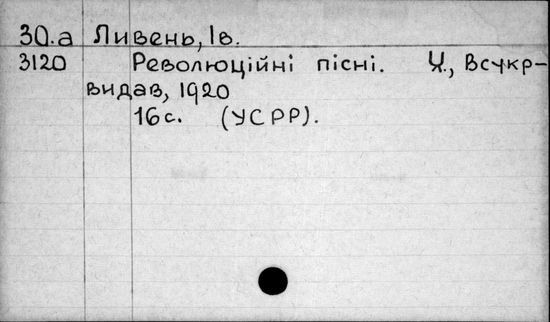 30.а Ливень, Ів.
3120 Революційні пісні. Х., Всукр-
видав, 1920
16 с. (УСРР).